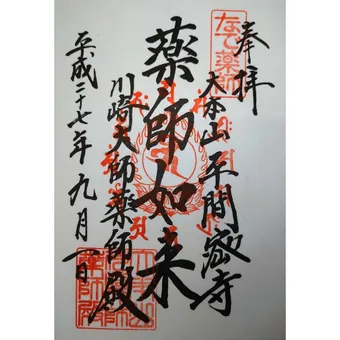 なで薬師
奉拝
大本山平間密寺
薬師如来
川崎大師薬師殿
平成二十七年九月一日